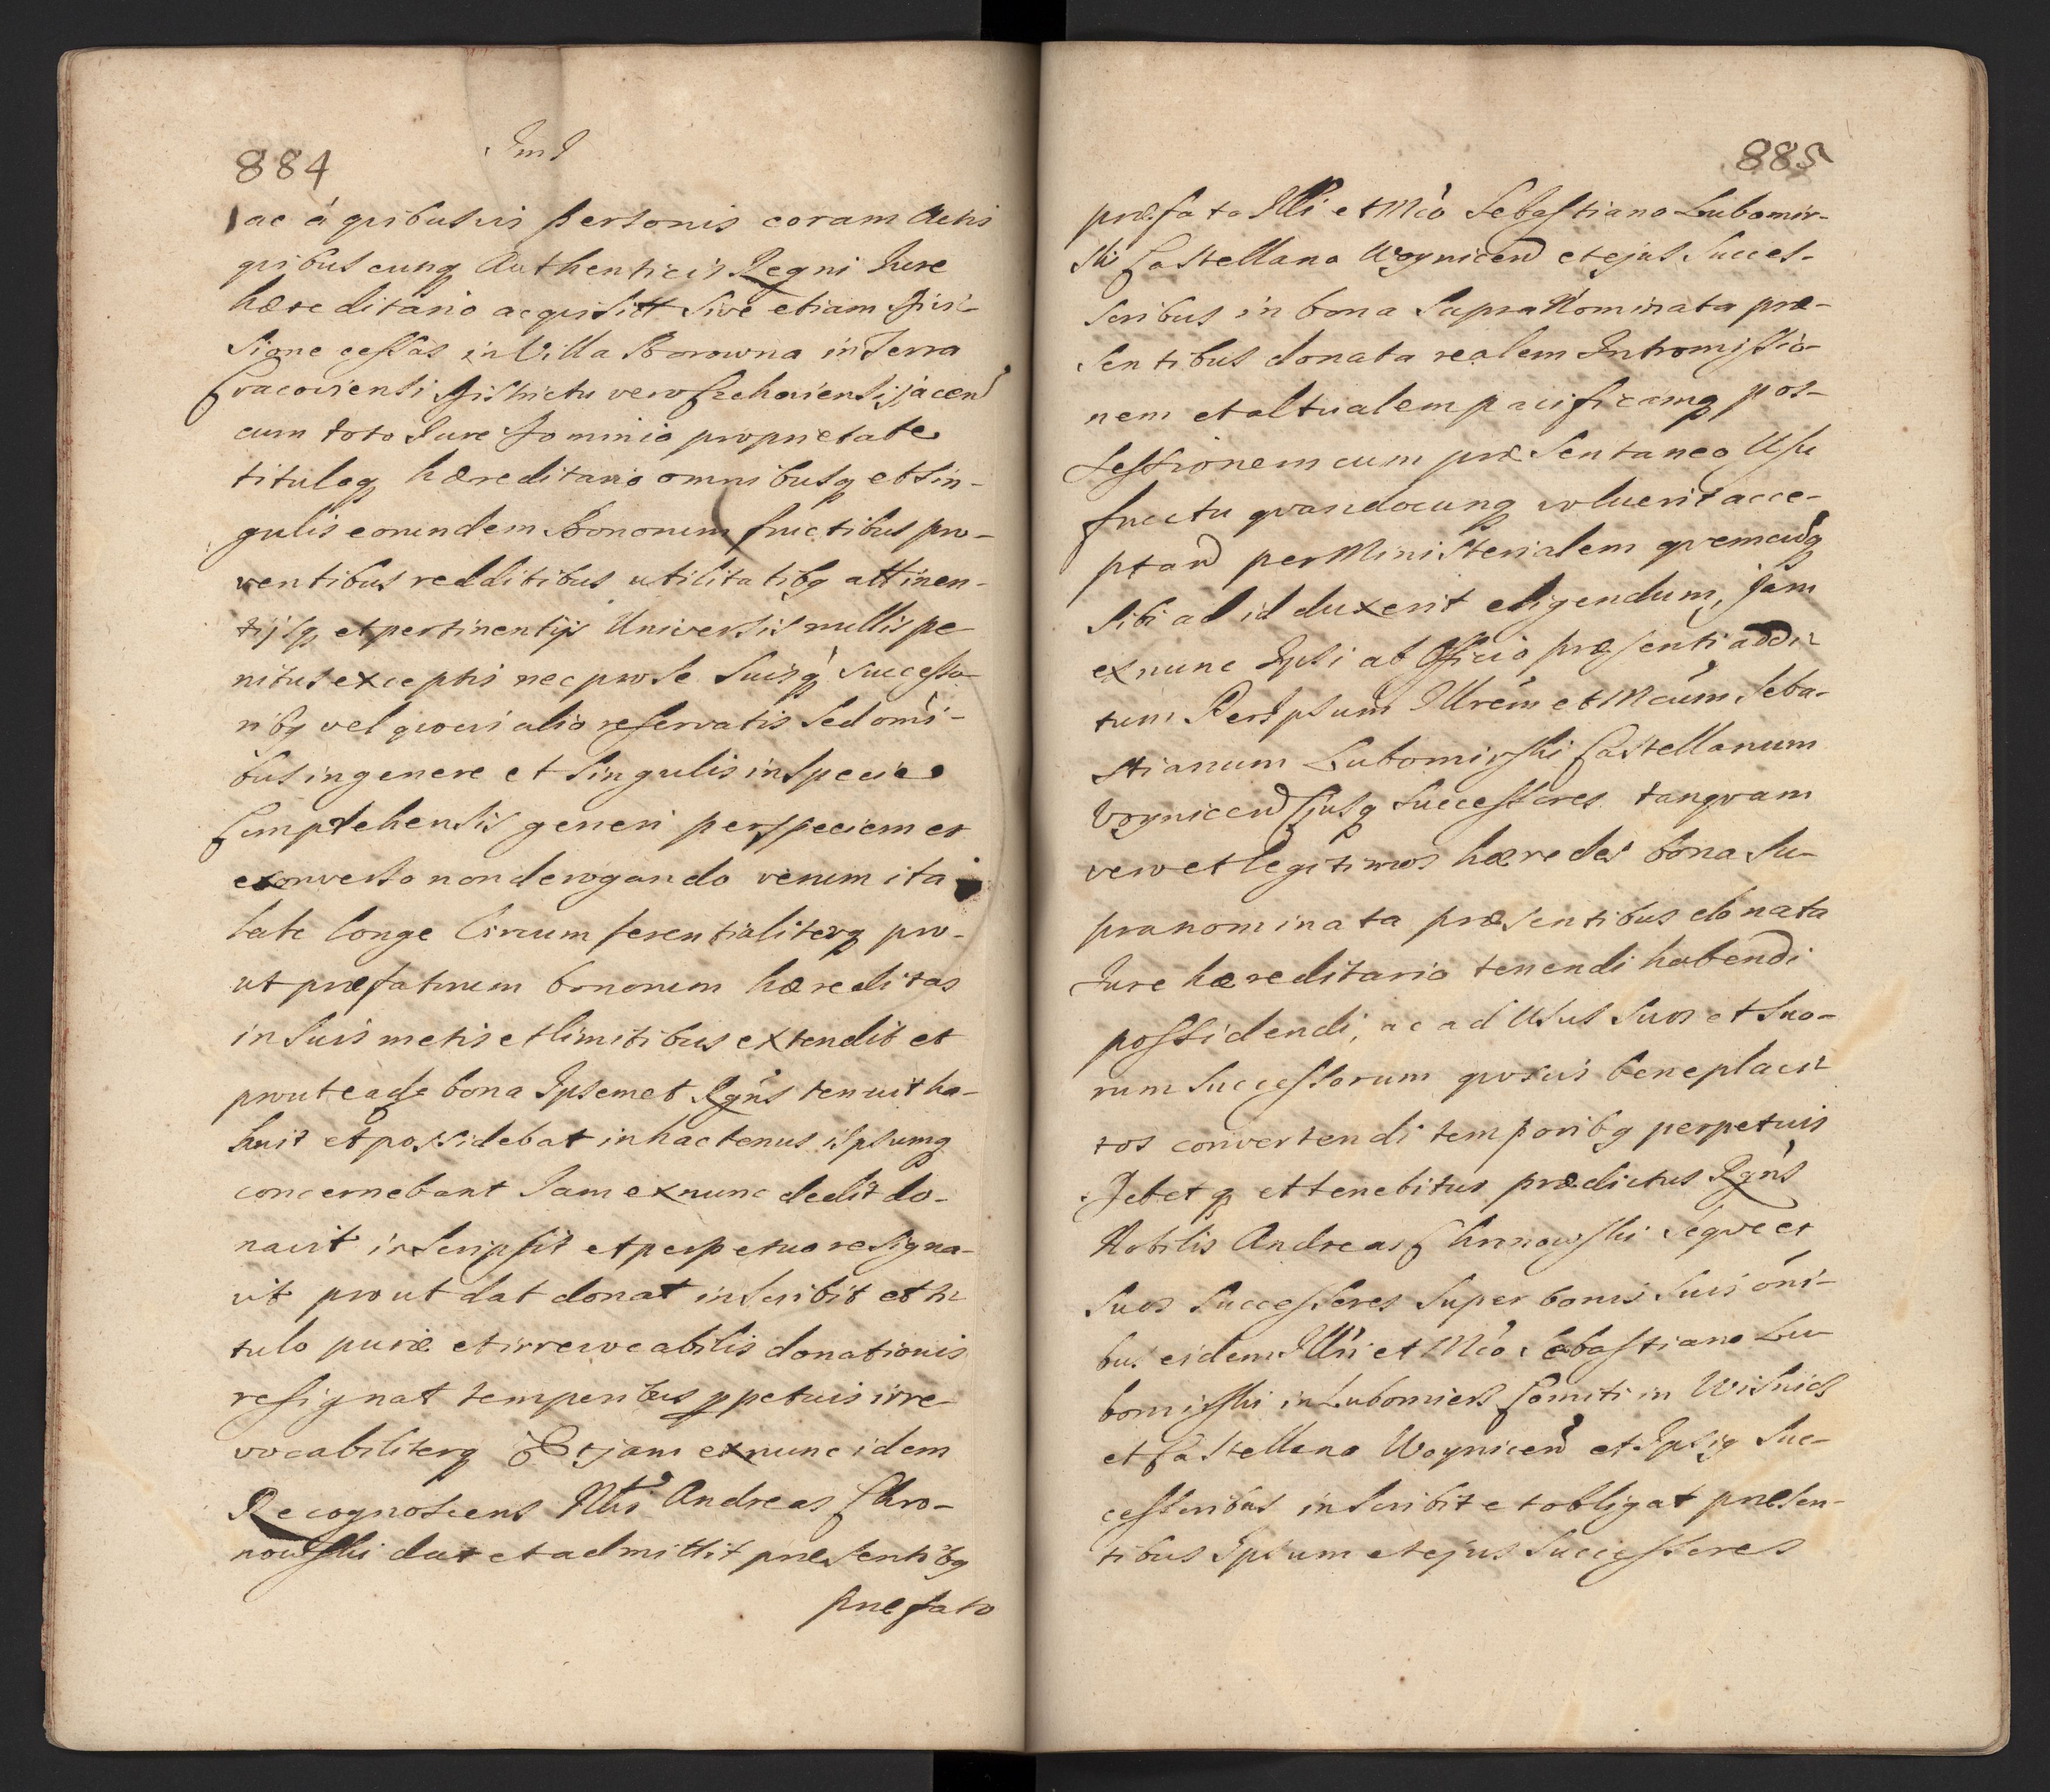 884
ac á quibusvis personis coram Actis
quibuscunq Authenticis Regni Jure
hæreditario acquisitt sive etiam Divi-
sione cessas in Villa Borowna in Terra
Cracoviensi Districtu vero Szchoviensi jacend
cum toto Jure Dominio proprietate
tituloq hæreditario omnibusq et sin-
gulis eorundem Bonorum fructibus pro-
ventibus redditibus utilitatibq attinen-
tijsq et pertinentijs Universis nullis pe
nitus exceptis nec pro se suisq successo-
ribq vel quovis alio reservatis sed omi-
bus in genere et singulis in specie
Comprehensis generi per speciem et
econverso non derogando verum ita
late longe Circumferentialiterq pro-
ut præfatorum bonorum hæreditas
in suis metis et limitibus extendit et
prout eade bona Ipsemet Rgns tenuit ha-
buit et possidebat inhactenus ipsumq
concernebant Jam exnunc dedit do-
navit inscripsit et perpetuo resigna-
vit prout dat donat inscribit et ti
tulo puræ et irrevocabilis donationis
resignat temporibus ppetuis irre-
vocabiliterq Et jam exnunc idem
Recognoscens Nlis Andreas Chro-
nowski dat et admittit præsentibq
præfato
885
præfato Illi et Mco Sebastiano Lubomir-
ski Castellano Woynicend et ejus Succes-
soribus in bona supra Nominata præ-
sentibus donata realem Intromissio-
nem et altualem pacificamq pos-
sessionem cum præsentaneo Usu
fructu quandocunq voluerit acce-
ptand per Ministerialem quemcunq
sibi ad id duxerit eligendum, Jam
exnunc Ipsi ab Officio præsenti addi-
tum Per Ipsum Illrem et Mcum Seba-
stianum Lubomirski Castellanum
Woynicend Ejusq Successores tanquam
vero et legitimos hæredes bona su-
pranominata præsentibus donata
Jure hæreditario tenendi habendi
possidendi, ac ad Usus suos et suo-
rum Successorum quosvis beneplaci-
tos convertendi temporibq perpetuis
Debet q et tenebitur prædictus Rgns
Nobilis Andreas Chronowski seque et
suos Successores super bonis suis oni-
bus eidem Illri et Mco Sebastiano Lu-
bomirski in Lubomierz Comiti in Wisnicz
et Castellano Woynicend et Ipsiq Suc-
cessoribus inscribit et obligat præsen-
tibus Ipsum et ejus Successores